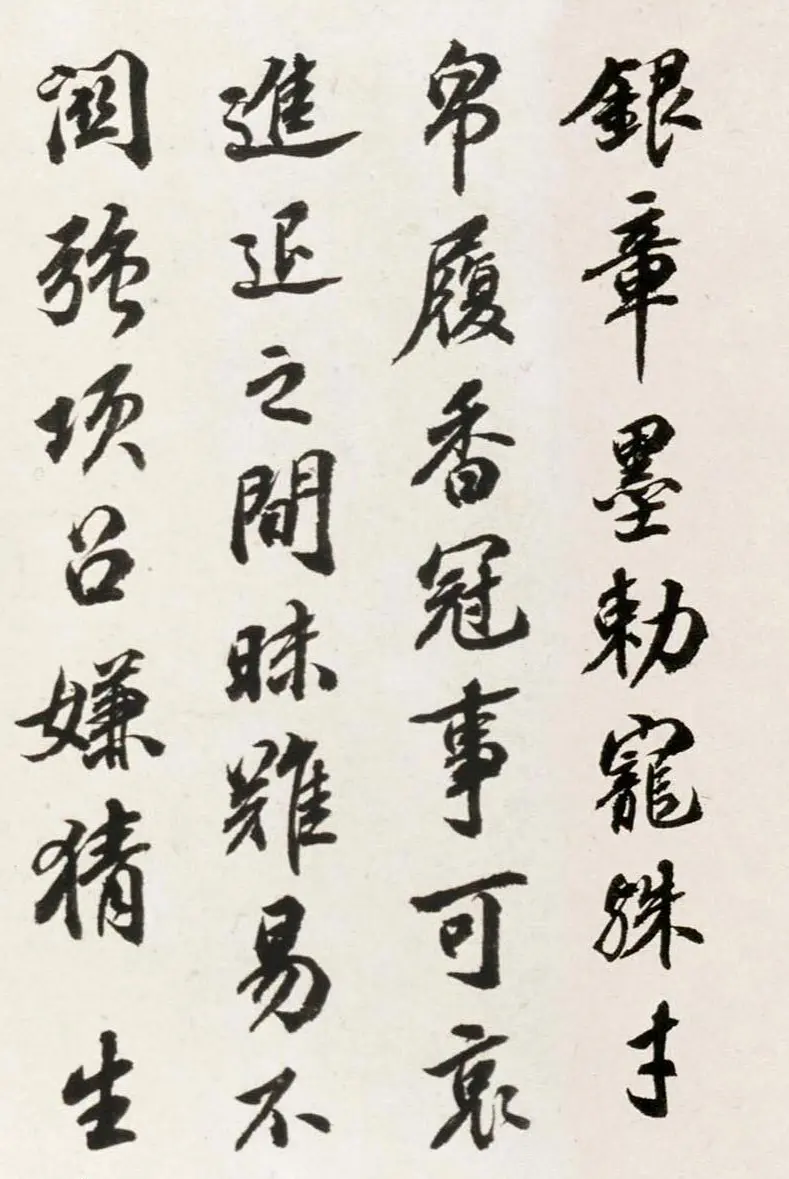 銀章墨勅寵殊才
帛履香冠事可哀
進退之間昧難易不
關強項召嫌猜 生